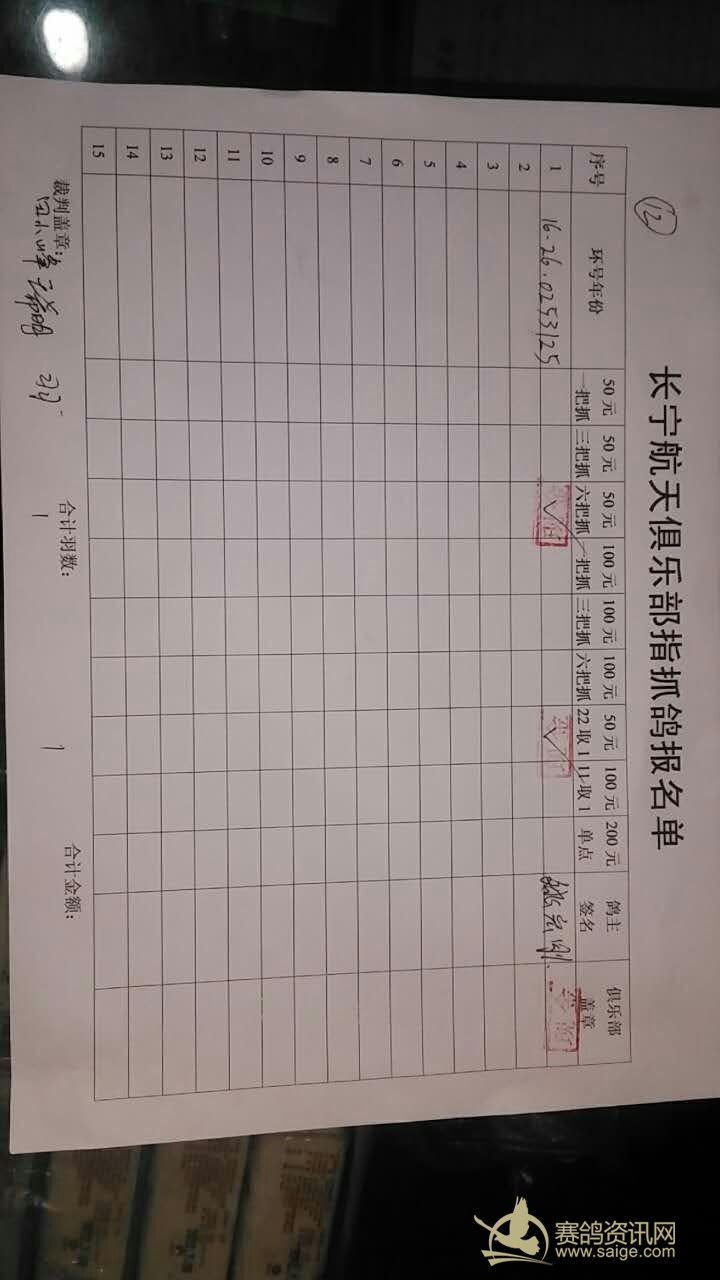 12
长宁航天俱乐部指抓鸽报名单
序号 环号年份 50元一把抓 50元三把抓 50元六把抓 100元一把抓 100元三把抓 100元六把抓 50元22取1 100元11取1 200元单点 鸽主签名 俱乐部盖章
1 16-26.0253125 ✓ ✓
2
3
4
5
6
7
8
9
10
11
12
13
14
15
裁判盖章: 合计羽数: 1 合计金额:
赛鸽资讯网
www.saige.com